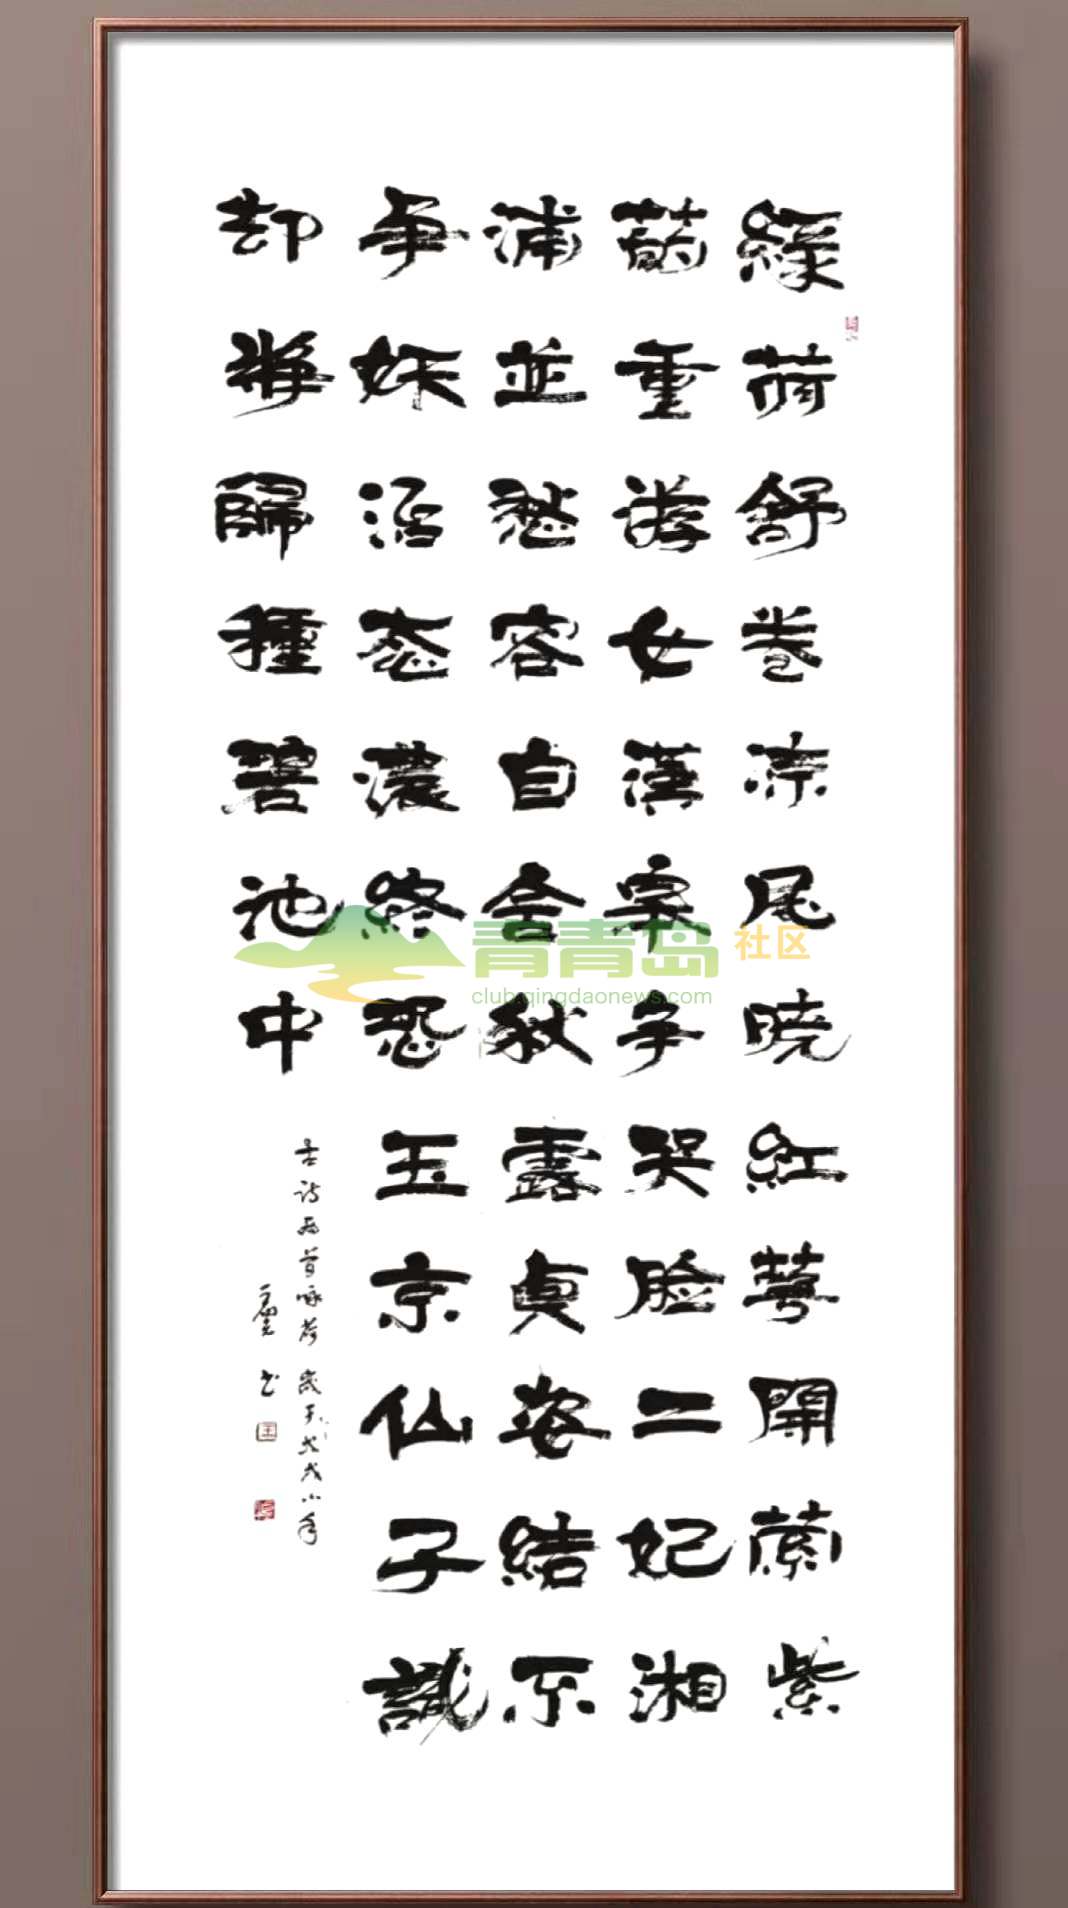 緑荷舒卷凉风晓紅萼開萦紫
菂重游女漢皋争笑脸二妃湘
浦並愁容自含秋露貞姿結不
争妖冶态濃終恐玉京仙子識
却將歸種碧池中
古诗两首咏荷 岁在戊戌小年
书
青青岛社区
club.qingdaonews.com